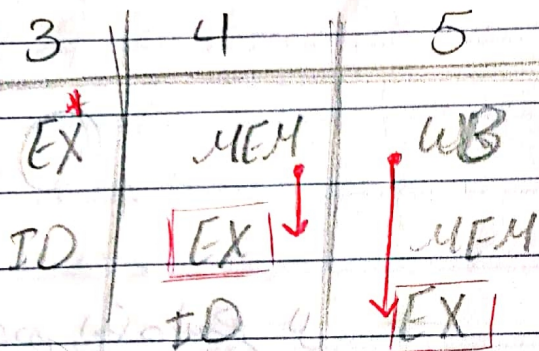 3 4 5
EX* MEM WB
ID EX MEM
ID EX